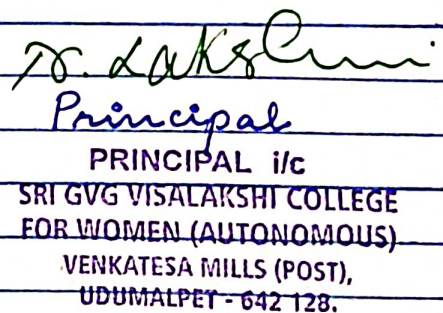 N. Lakshmi
Principal
PRINCIPAL i/c
SRI GVG VISALAKSHI COLLEGE
FOR WOMEN (AUTONOMOUS)
VENKATESA MILLS (POST),
UDUMALPET - 642 128.